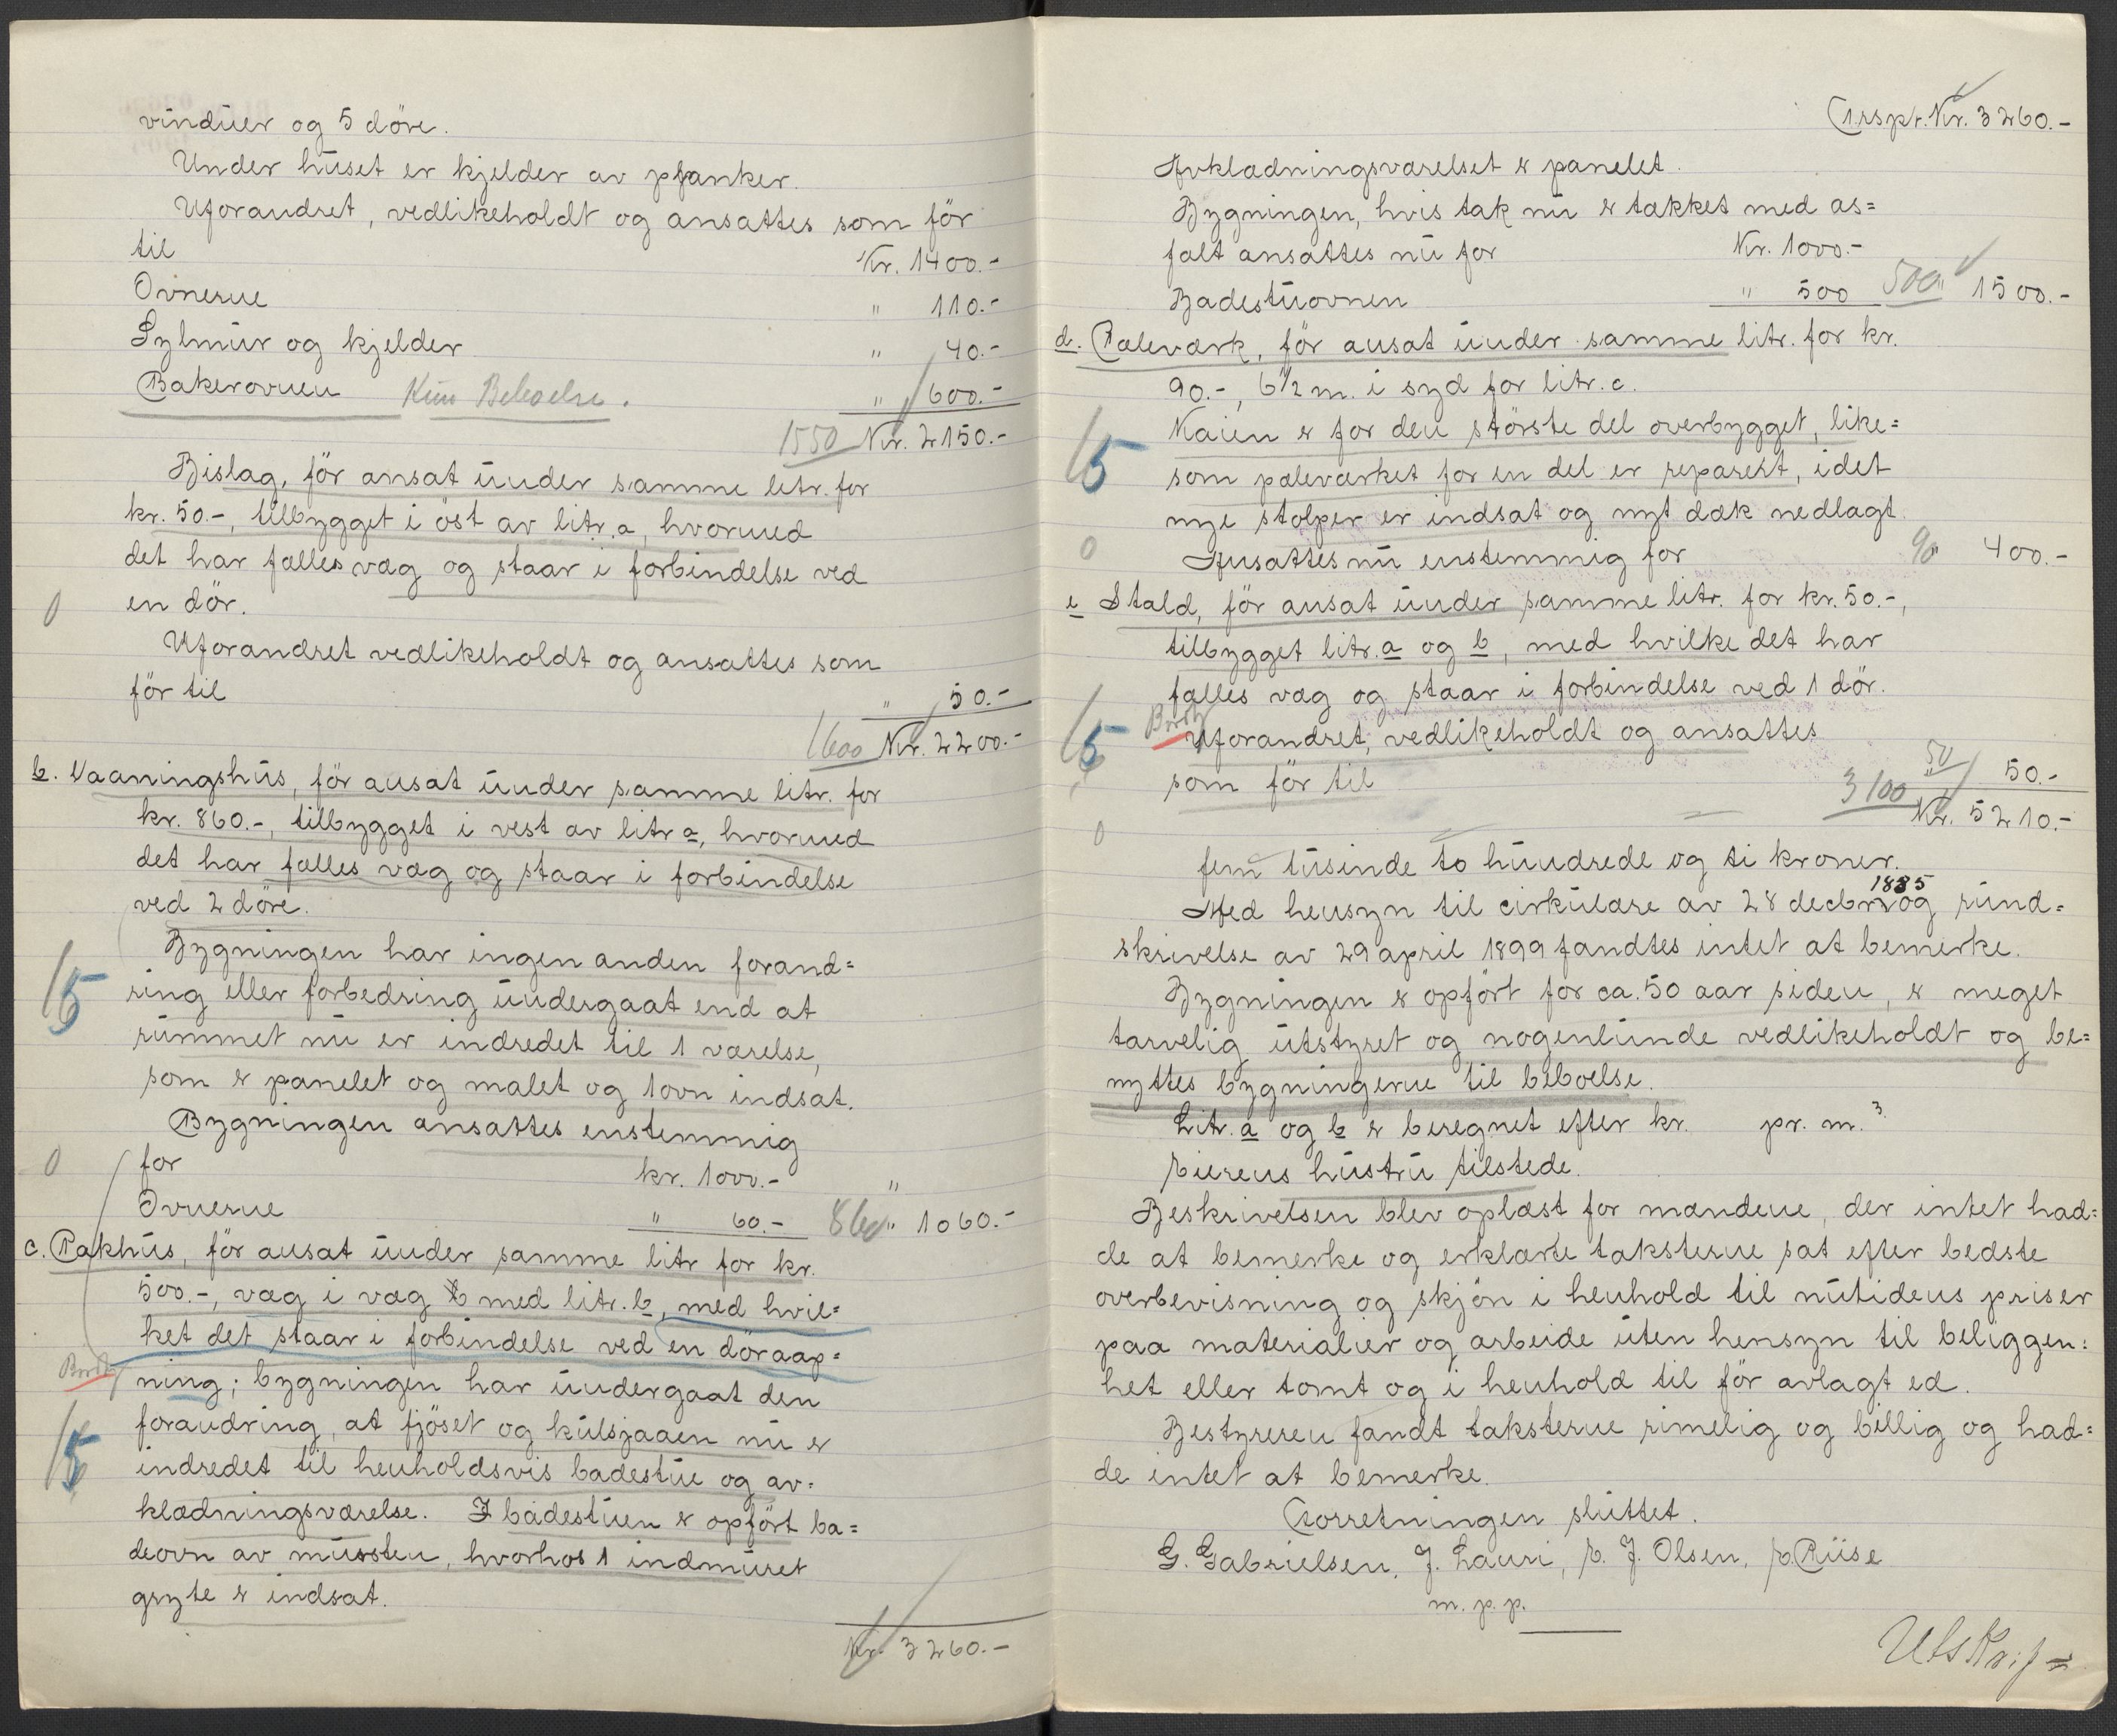 vinduer og 5 döre.
Under huset er kjelder av planker.
Uforandret, vedlikeholdt og ansattes som för
til Kr. 1400.-
Ovnerne " 110.-
Sylmur og kjelder " 40.-
Bakerovnen Kun Beboelse. " 600.-
1550 Kr. 2150.-
Bislag, för ansat under samme litr. for
kr. 50.-, tilbygget i öst av litr. a, hvormed
det har fælles væg og staar i forbindelse ved
en dör.
0
Uforandret vedlikeholdt og ansattes som
för til " 50.-
1600 Kr. 2200.-
b. Vaaningshus, för ansat under samme litr. for
kr. 860.-, tilbygget i vest av litr a, hvormed
det har fælles væg og staar i forbindelse
ved 2 döre.
Bygningen har ingen anden forand=
15 ring eller forbedring undergaat end at
rummet nu er indredet til 1 værelse,
som er panelet og malet og 1 ovn indsat.
Bygningen ansattes enstemmig
0 for kr. 1000.- "
Ovnerne " 60.- 860 " 1060.-
c. Pakhus, för ansat under samme litr for kr.
500.-, væg i væg med litr. b, med hvil=
ket det staar i forbindelse ved en döraap=
ning; bygningen har undergaat den
forandring, at fjöset og kulsjaaen nu er
15 indredet til henholdsvis badestue og av=
klædningsværelse. I badestuen er opfört ba=
deovn av mursten, hvorhos 1 indmuret
gryte er indsat.
Kr. 3260.-
Trspt. Kr. 3260.-
Avklædningsværelset er panelet.
Bygningen, hvis tak nu er tækket med as=
falt ansattes nu for Kr. 1000.-
Badestuovnen " 500 500 " 1500.-
d. Pæleværk, för ansat under samme litr. for kr.
90.-, 6 1/2 m. i syd for litr. c.
15 Kaien er for den störste del overbygget, like=
som pæleværket for en del er reparert, idet
nye stolper er indsat og nyt dæk nedlagt.
0 Ansattes nu enstemmig for 90 400.-
e Stald, för ansat under samme litr. for kr. 50.-,
tilbygget litr. a og b, med hvilke det har
fælles væg og staar i forbindelse ved 1 dör.
15 Uforandret, vedlikeholdt og ansattes
som för til 50 " 50.-
3100 Kr. 5210.-
0
fem tusinde to hundrede og ti kroner.
Med hensyn til cirkulære av 28 decbr 1885 og rund=
skrivelse av 29 april 1899 fandtes intet at bemerke.
Bygningen er opfört for ca. 50 aar siden, er meget
tarvelig utstyret og nogenlunde vedlikeholdt og be=
nyttes bygningerne til beboelse.
Litr. a og b er beregnet efter kr. pr. m.3
Eierens hustru tilstede.
Beskrivelsen blev oplæst for mændene, der intet had=
de at bemerke og erklærte taksterne sat efter bedste
overbevisning og skjön i henhold til nutidens priser
paa materialier og arbeide uten hensyn til beliggen=
het eller tomt og i henhold til för avlagt ed.
Bestyreren fandt taksterne rimelig og billig og had=
de intet at bemerke.
Forretningen sluttet.
G. Gabrielsen, J. Lauri, E. J. Olsen, E. Riise
m. p. p.
Utskrift